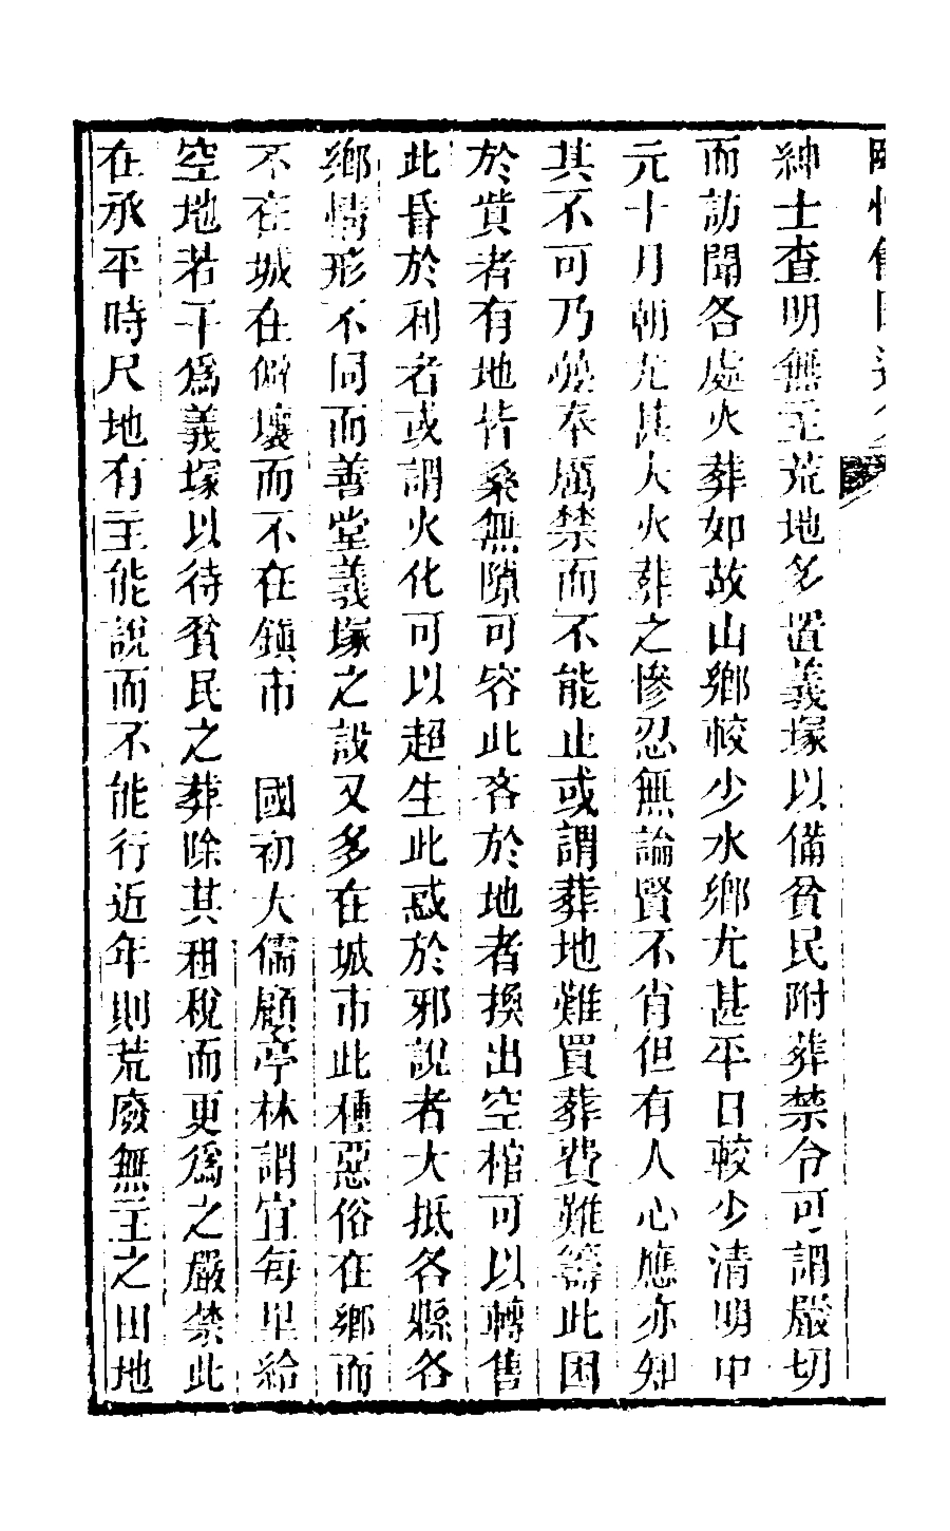 紳士查明無主荒地多置義塚以備貧民附葬禁令可謂嚴切
而訪聞各處火葬如故山鄉較少水鄉尤甚平日較少清明中
元十月朝尤甚夫火葬之慘忍無論賢不肖但有人心應亦知
其不可乃雖奉厲禁而不能止或謂葬地難買葬費難籌此困
於貲者有地皆桑無隙可容此吝於地者換出空棺可以轉售
此昏於利者或謂火化可以超生此惑於邪說者大抵各縣各
鄉情形不同而善堂義塚之設又多在城市此種惡俗在鄉而
不在城在僻壤而不在鎮市　國初大儒顧亭林謂宜每里給
空地若干為義塚以待貧民之葬除其租稅而更為之嚴禁此
在承平時尺地有主能說而不能行近年則荒廢無主之田地